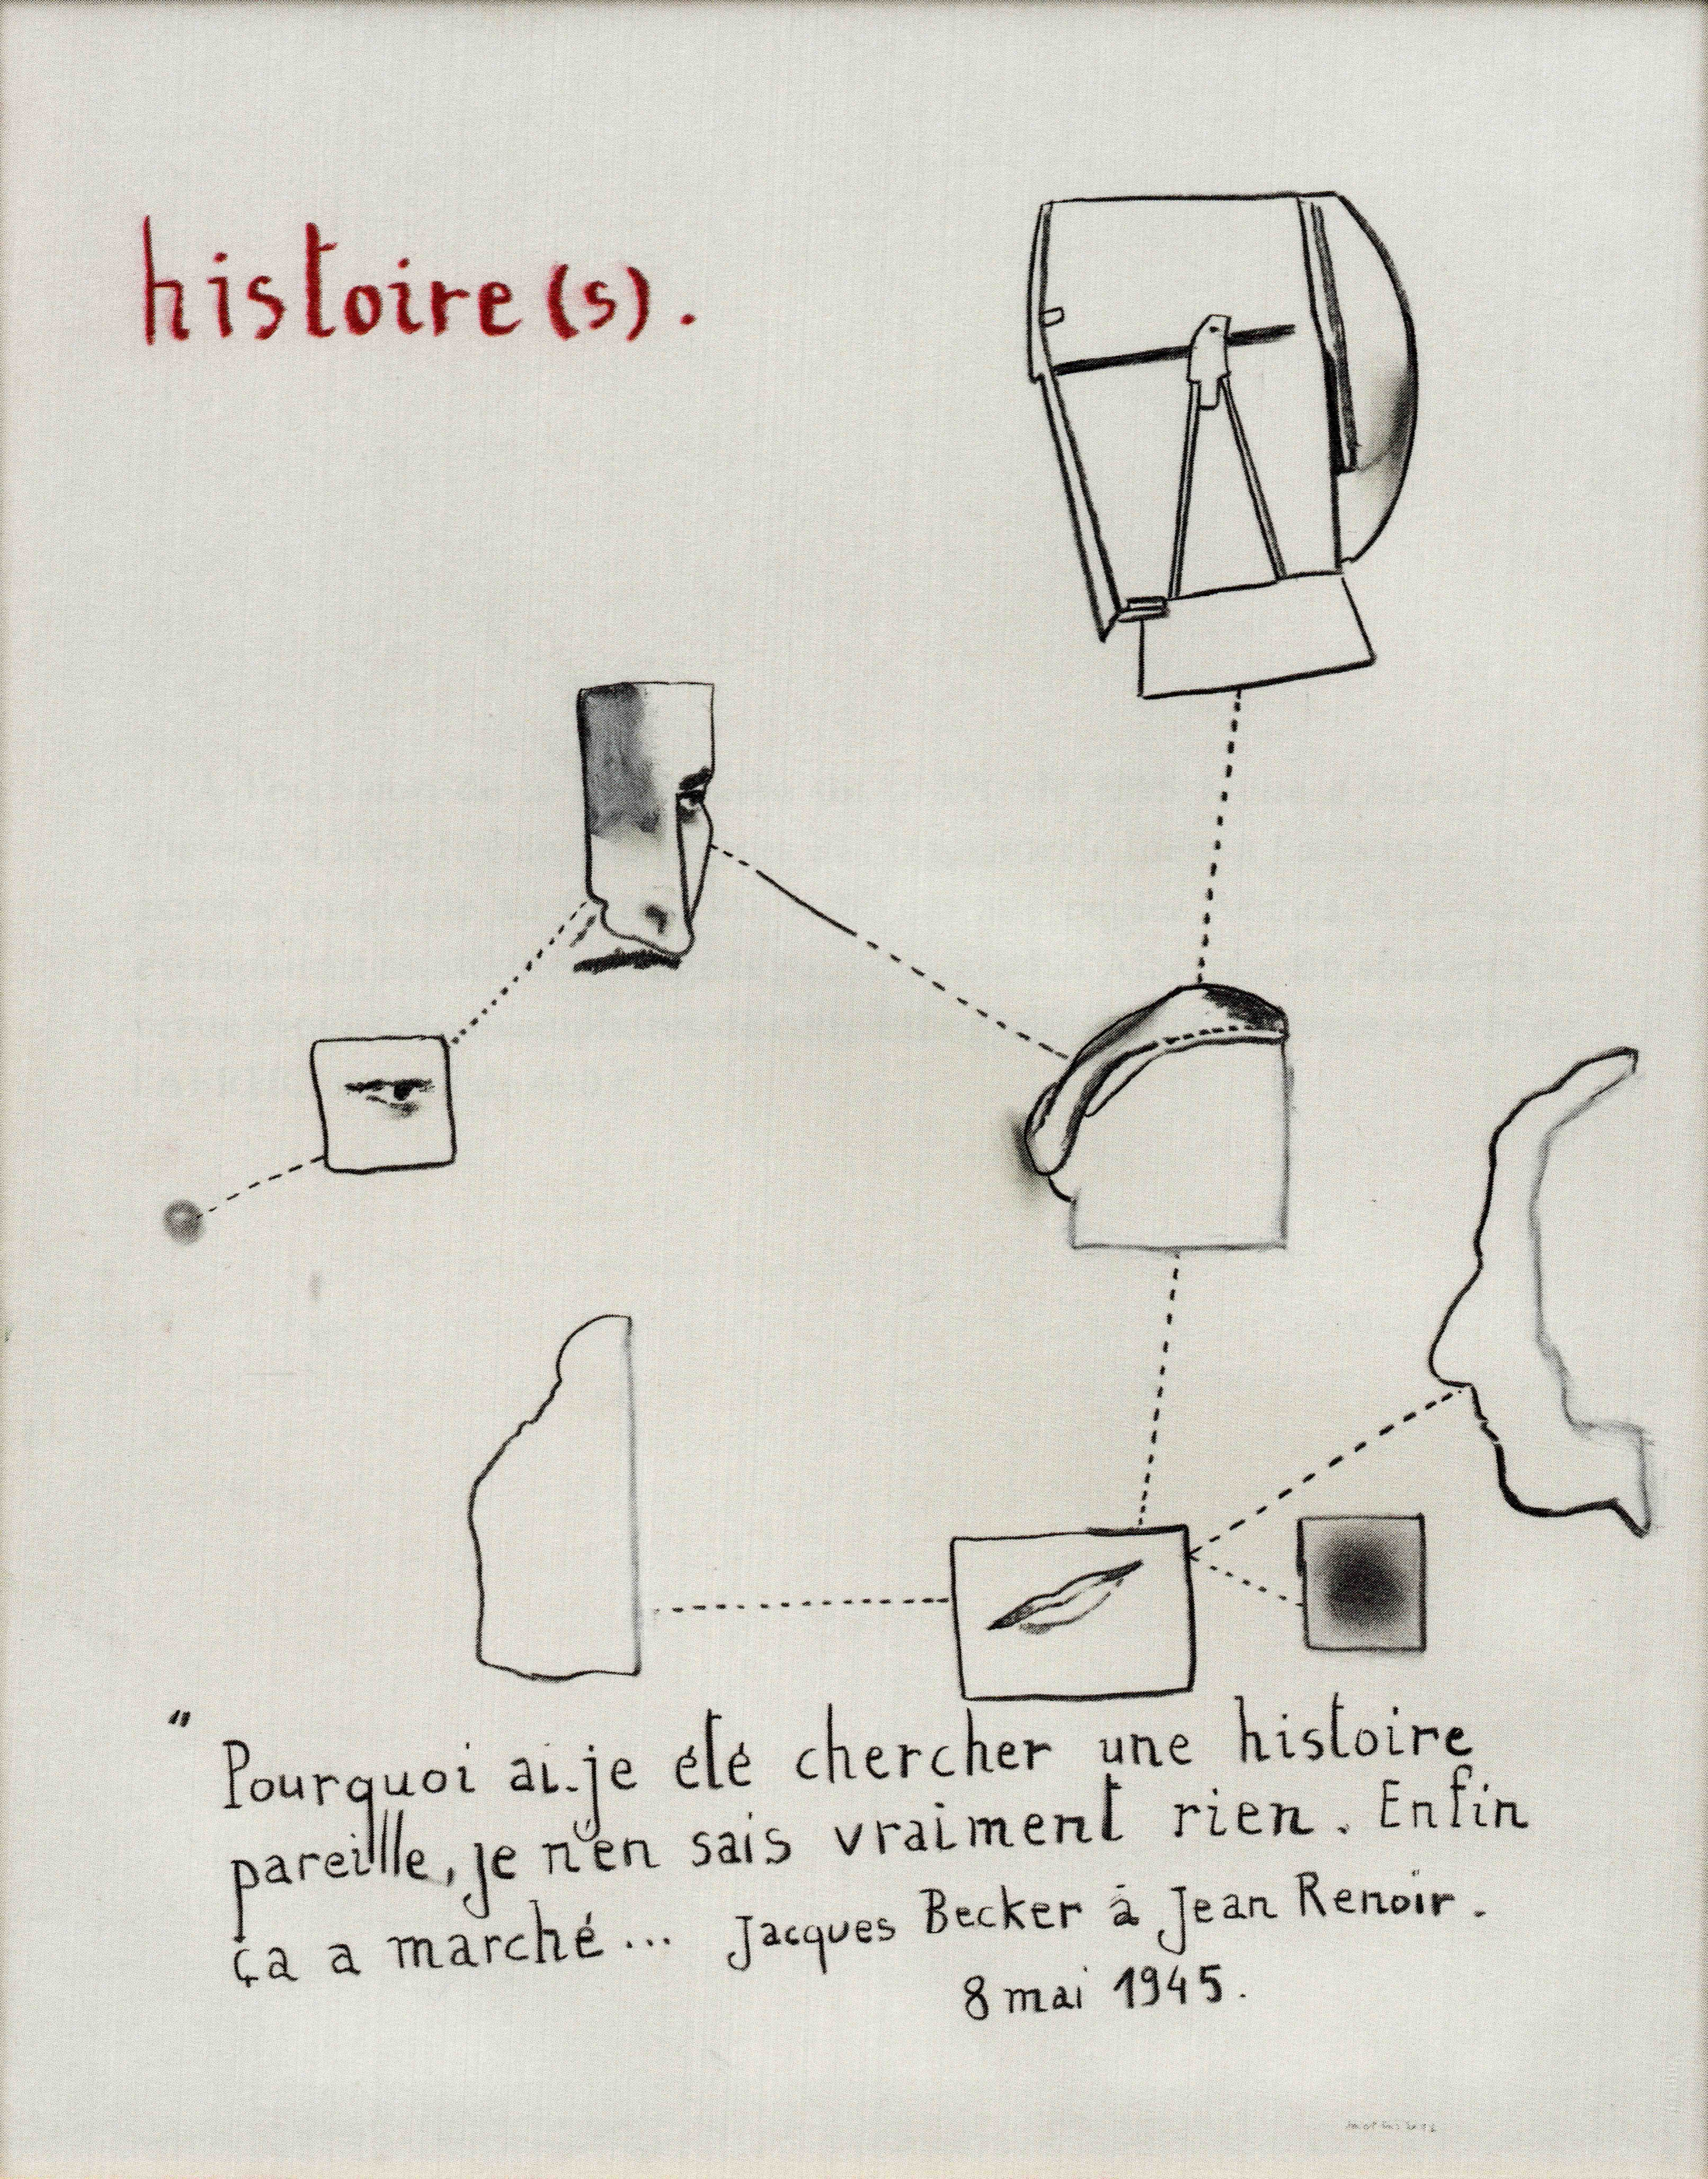 histoire(s).
" Pourquoi ai-je été chercher une histoire
pareille, je n'en sais vraiment rien. Enfin
ça a marché... Jacques Becker à Jean Renoir.
8 mai 1945.